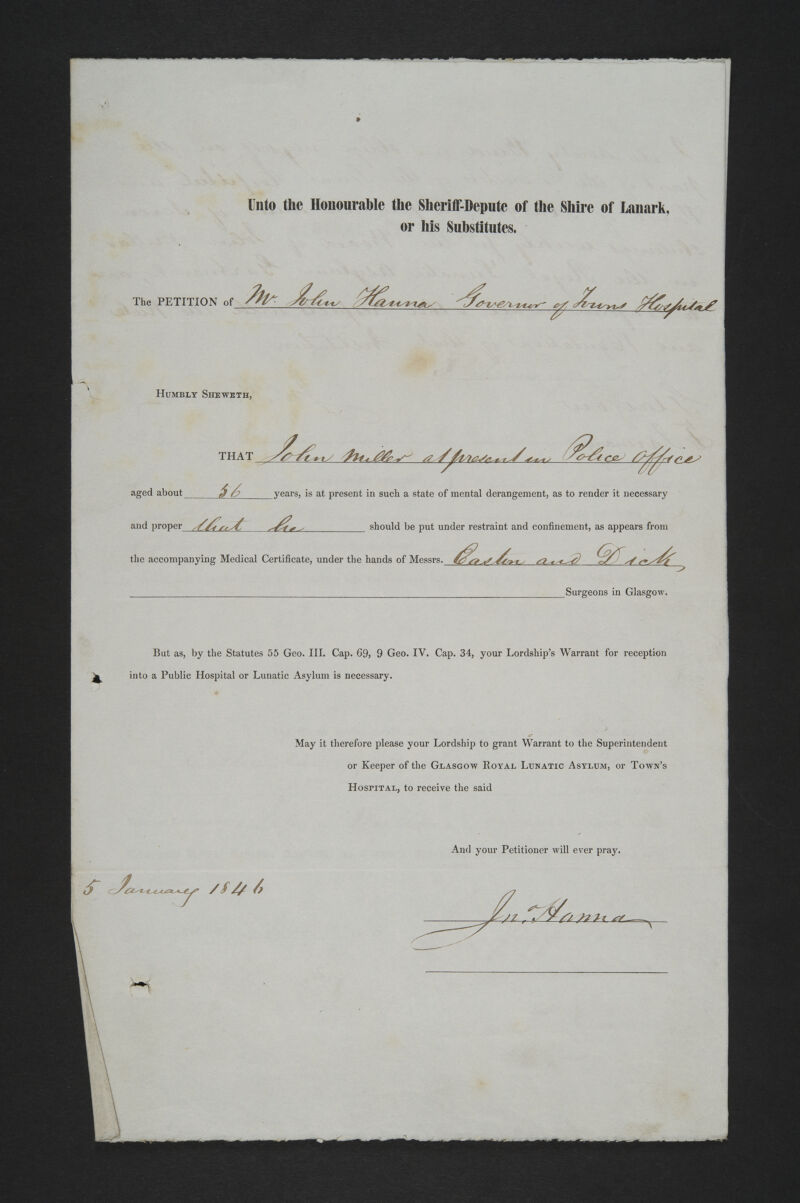 Unto the Honourable the Sheriff-Depute of the Shire of Lanark,
or his Substitutes.
The PETITION of Mr. John Hanna Governor of Towns Hospital
HUMBLY SHEWETH,
THAT John Miller at present in Police Office
aged about 36 years, is at present in such a state of mental derangement, as to render it necessary
and proper that he should be put under restraint and confinement, as appears from
the accompanying Medical Certificate, under the hands of Messrs. Easton and Dick,
Surgeons in Glasgow.
But as, by the Statutes 55 Geo. III. Cap. 69, 9 Geo. IV. Cap. 34, your Lordship's Warrant for reception
into a Public Hospital or Lunatic Asylum is necessary.
May it therefore please your Lordship to grant Warrant to the Superintendent
or Keeper of the GLASGOW ROYAL LUNATIC ASYLUM, or TOWN'S
HOSPITAL, to receive the said
And your Petitioner will ever pray.
5 January 1846
Jno. Hanna